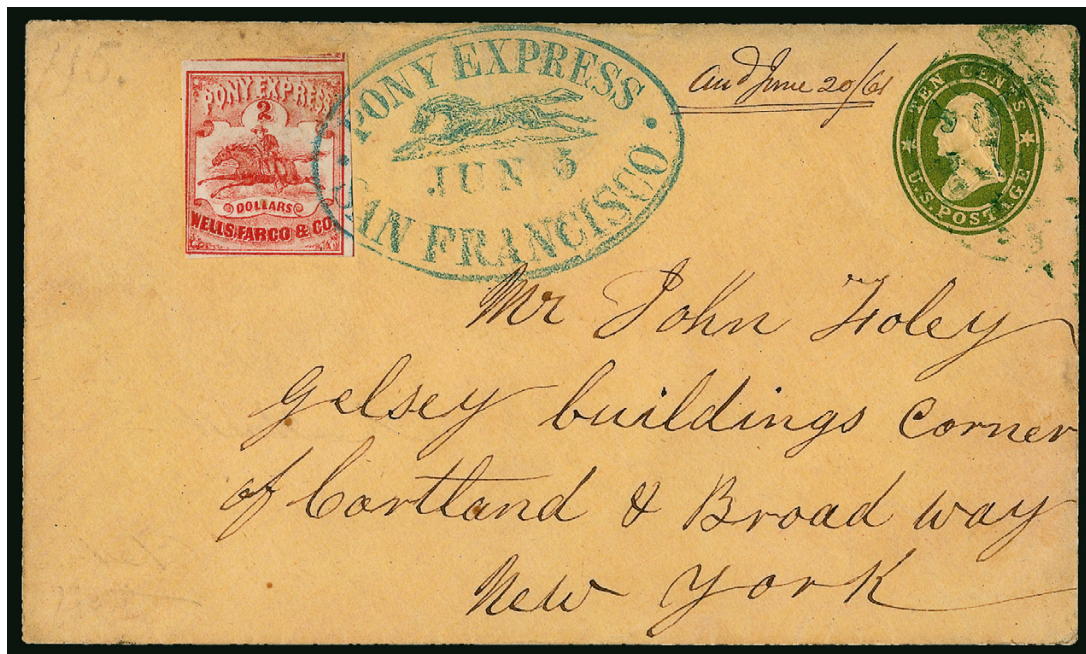 PONY EXPRESS
2
DOLLARS
WELLS, FARGO & CO.
PONY EXPRESS
JUN 5
SAN FRANCISCO
and June 20/61
TEN CENTS
U.S. POSTAGE
Mr John Foley
Gelsey buildings Corner
of Cortland & Broad way
New York